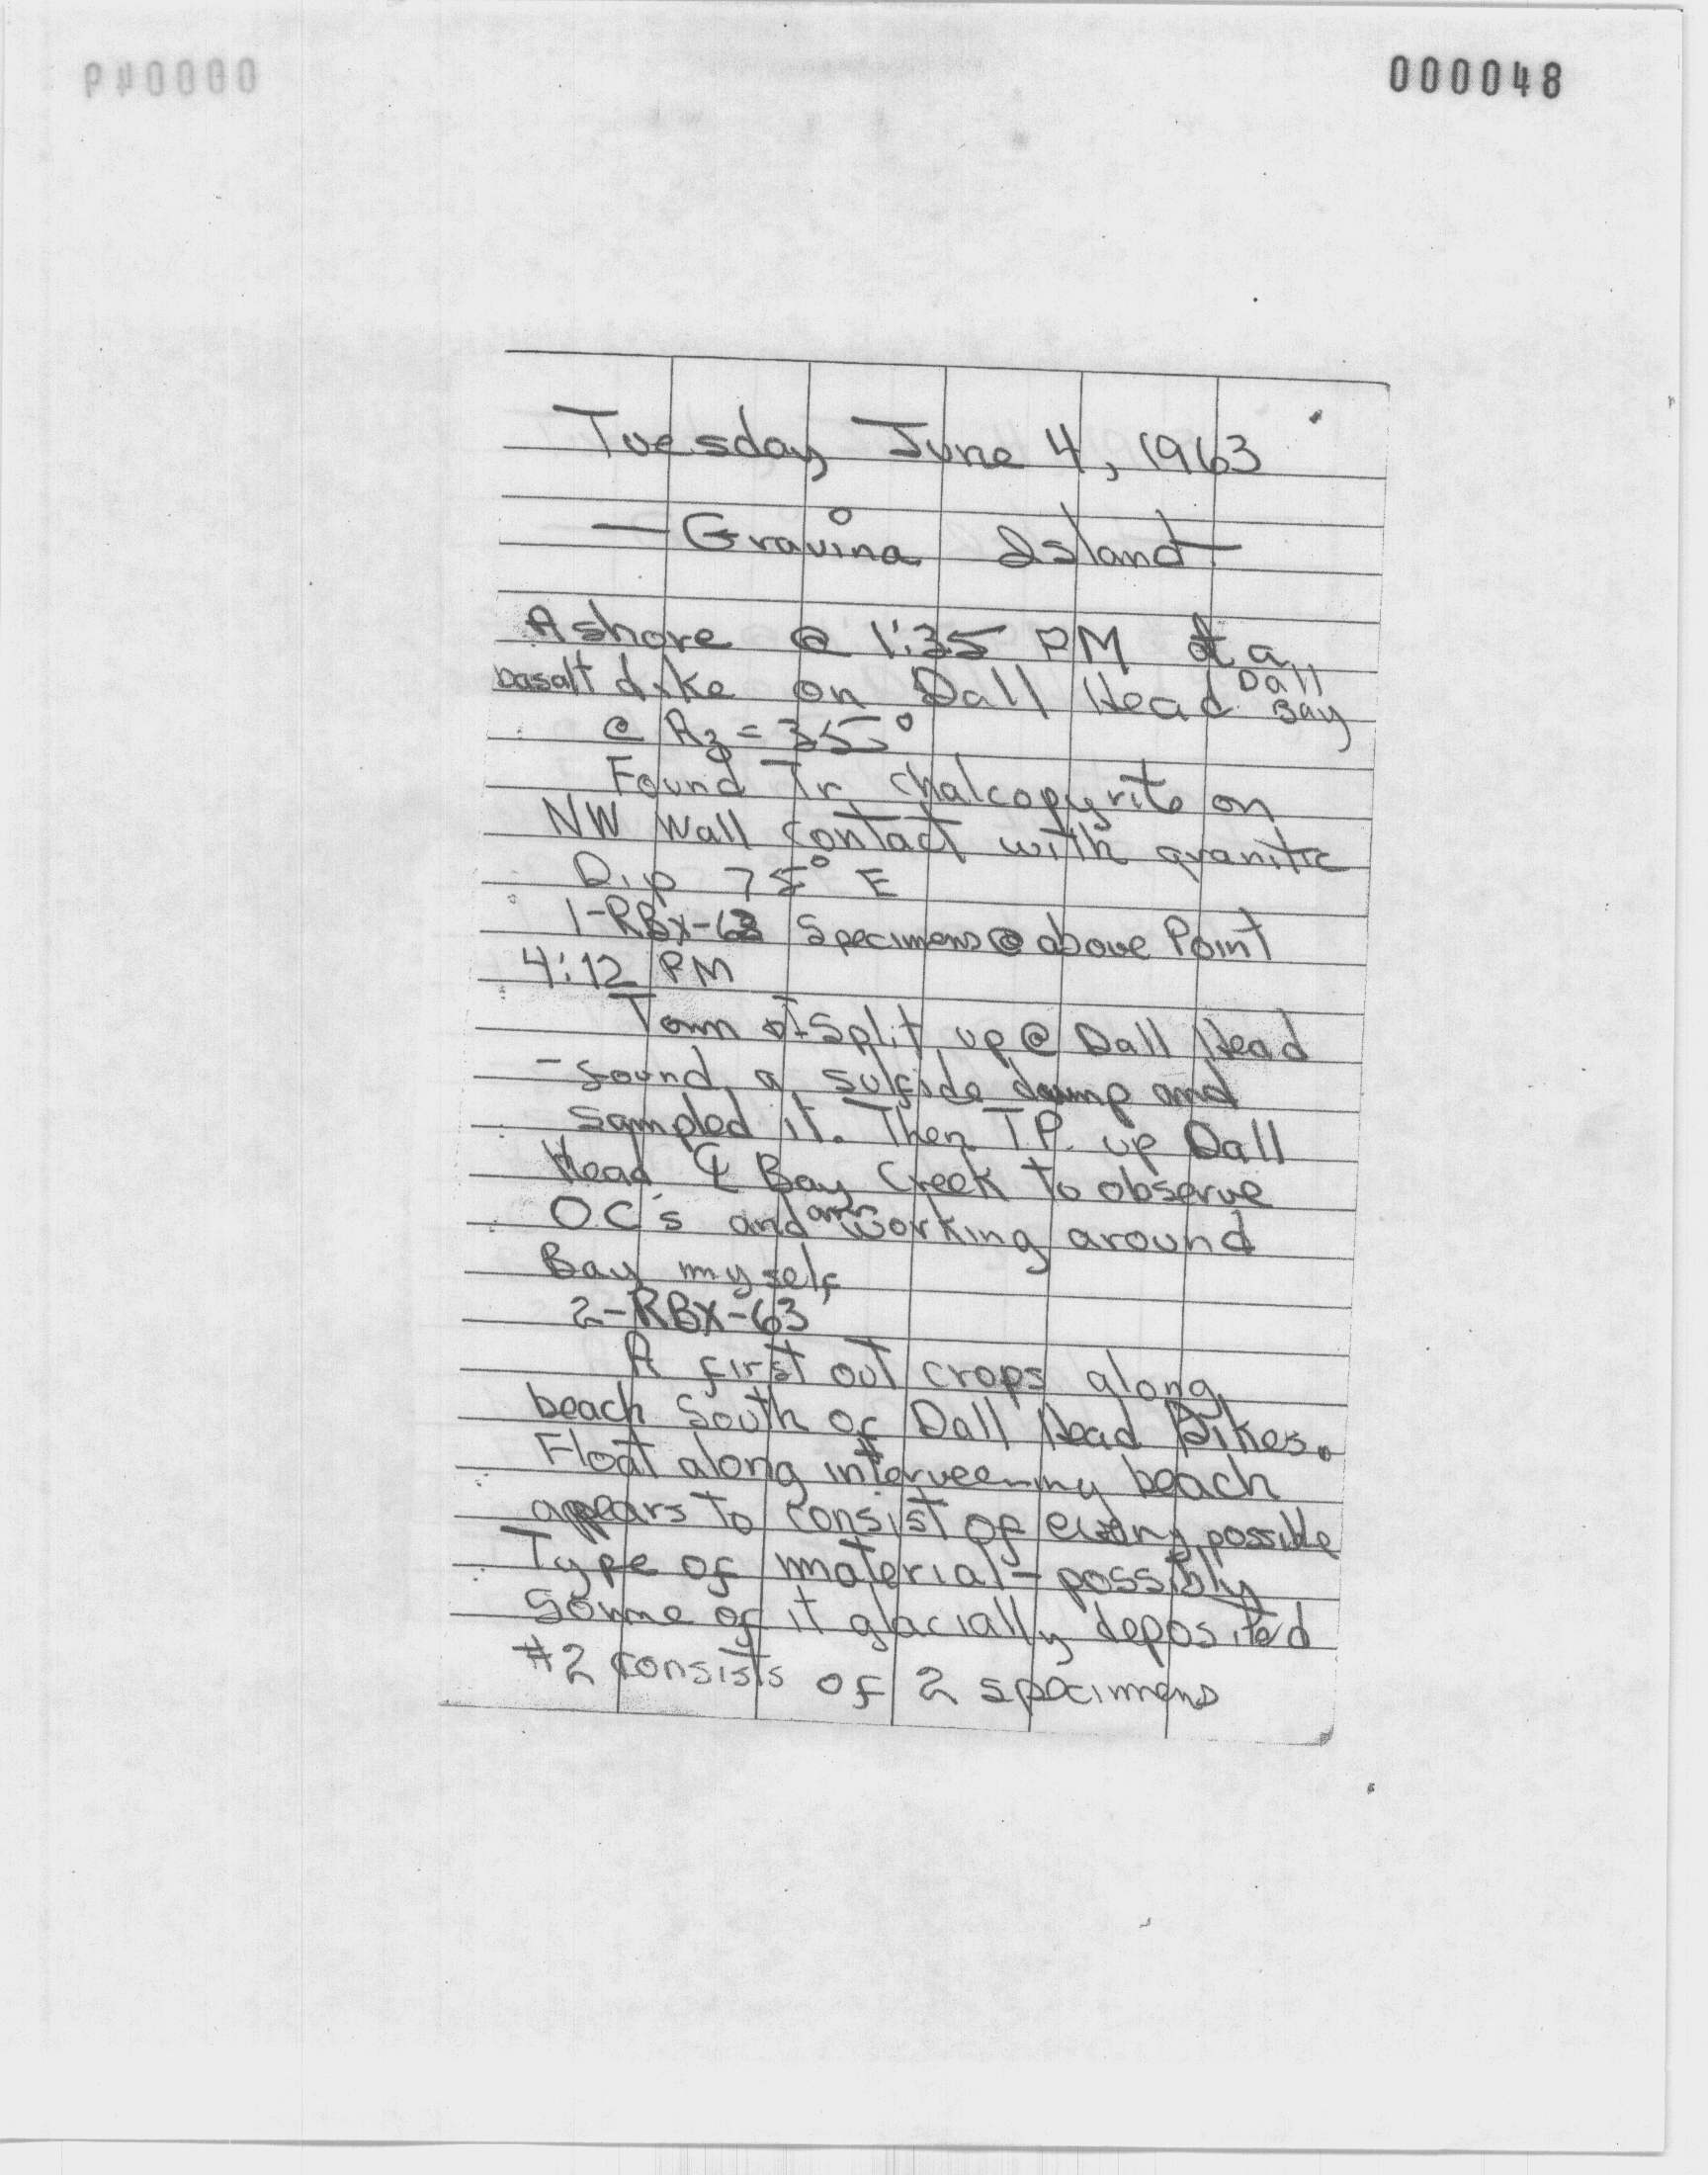 000048
Tuesday June 4, 1963
— Gravina Island —
Ashore @ 1:35 PM at a
basalt dike on Dall Head Dall Bay
@ Az = 355°
Found Tr chalcopyrite on
NW Wall contact with granitic
Dip 75° E
1-RBX-63 Specimens @ above Point
4:12 PM
Tom & I split up @ Dall Head
- found a sulfide dump and
sampled it. Then T.P. up Dall
Head Bay Creek to observe
OC's and am working around
Bay myself
2-RBX-63
A first out crops along
beach South of Dall Head Dikes.
Float along interveening beach
appears to consist of every possible
Type of material - possibly
Some of it glacially deposited
#2 consists of 2 specimens